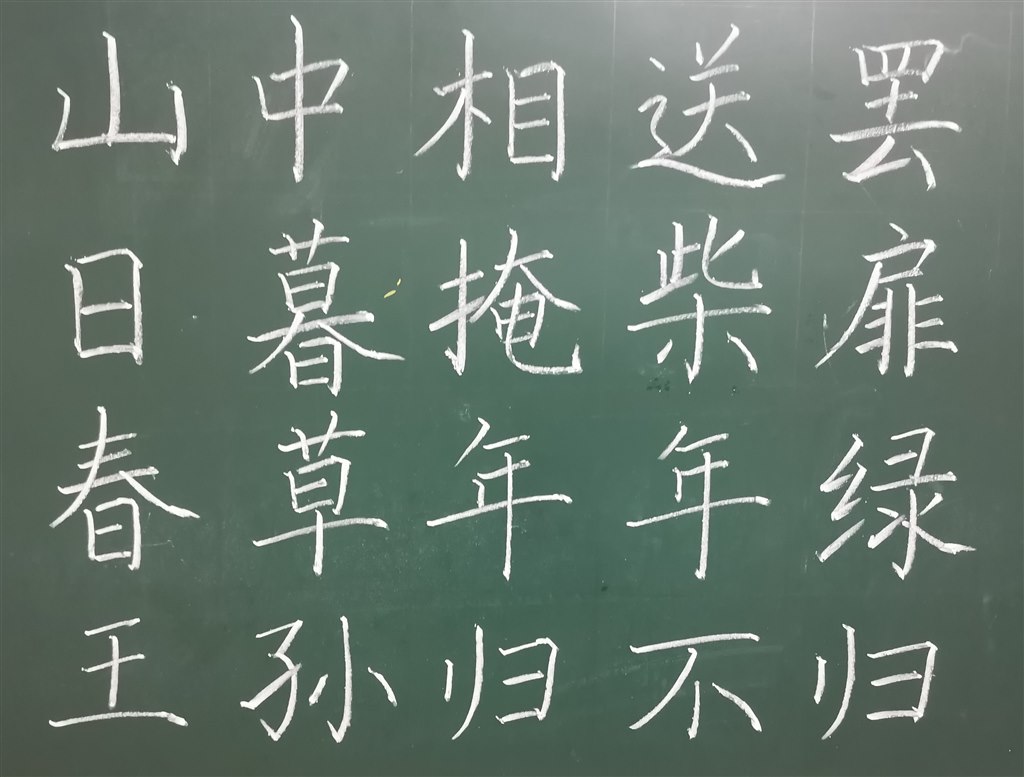 山中相送罢
日暮掩柴扉
春草年年绿
王孙归不归